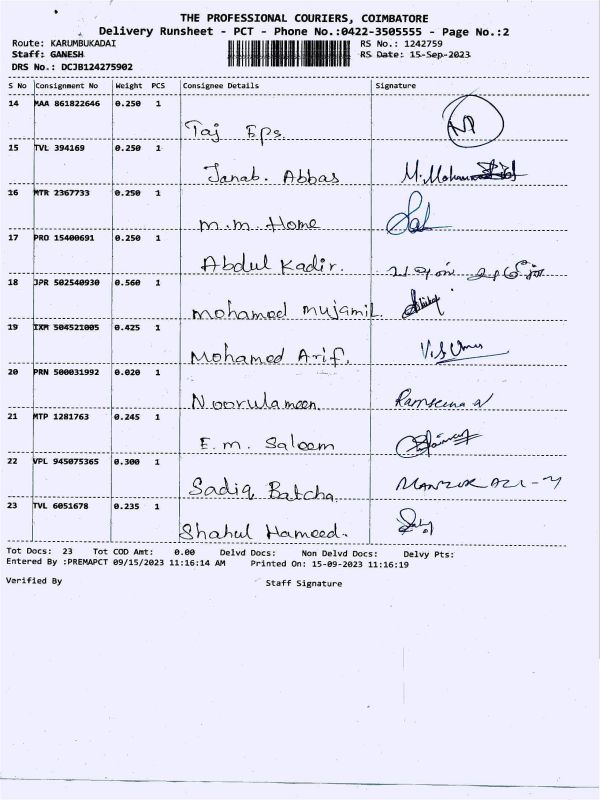 THE PROFESSIONAL COURIERS, COIMBATORE
Delivery Runsheet - PCT - Phone No.:0422-3505555 - Page No.:2
Route: KARUMBUKADAI RS No.: 1242759
Staff: GANESH RS Date: 15-Sep-2023
DRS No.: DCJB124275902
S No Consignment No Weight PCS Consignee Details Signature
14 MAA 861822646 0.250 1
Taj Eps.
15 TVL 394169 0.250 1
Janab. Abbas
16 MTR 2367733 0.250 1
m.m. Home
17 PRO 15400691 0.250 1
Abdul Kadir.
18 JPR 502540930 0.560 1
mohamed mujamil.
19 IXM 504521005 0.425 1
Mohamed Arif.
20 PRN 500031992 0.020 1
Noorulameen.
21 MTP 1281763 0.245 1
E.m. Saleem
22 VPL 945075365 0.300 1
Sadiq Batcha.
23 TVL 6051678 0.235 1
Shahul Hameed.
Tot Docs: 23 Tot COD Amt: 0.00 Delvd Docs: Non Delvd Docs: Delvy Pts:
Entered By :PREMAPCT 09/15/2023 11:16:14 AM Printed On: 15-09-2023 11:16:19
Verified By Staff Signature